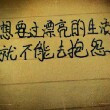 想要过漂亮的生活
就不能去抱怨